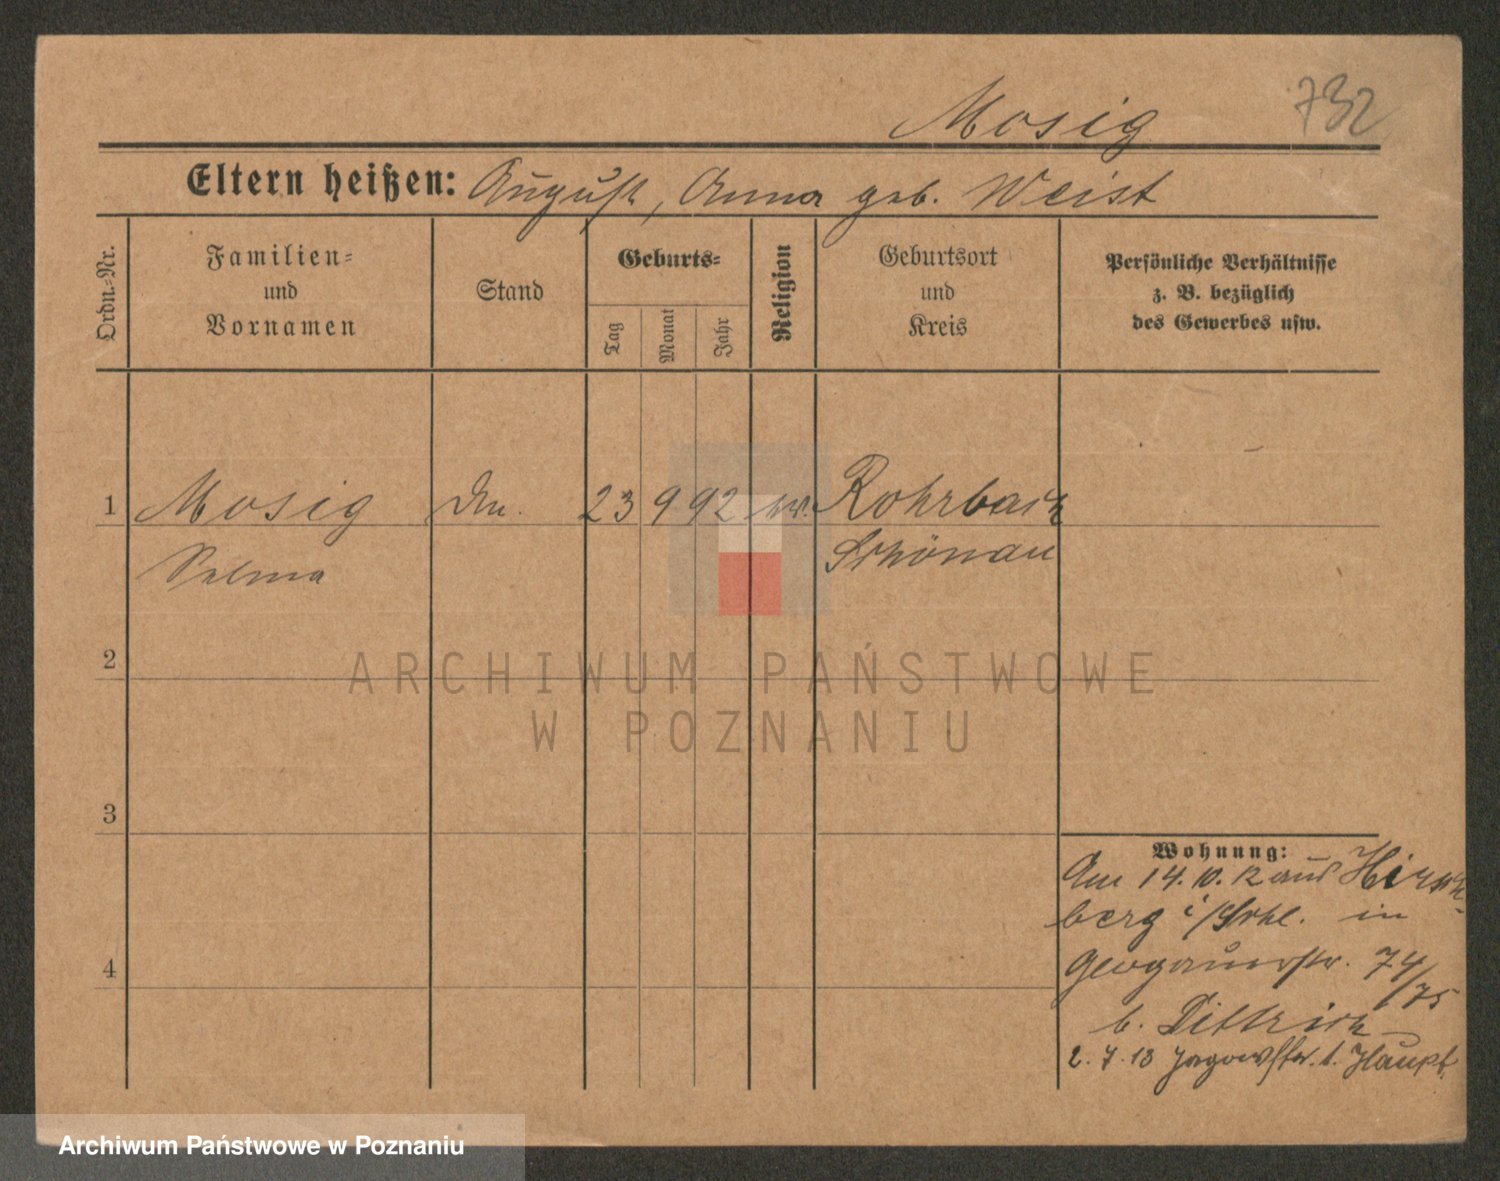 Mosig
732
Eltern heißen: August, Anna geb. Weist
Ordn.-Nr.
Familien-
und
Vornamen
Stand
Geburts-
Tag
Monat
Jahr
Religion
Geburtsort
und
Kreis
Persönliche Verhältnisse
z. B. bezüglich
des Gewerbes usw.
1 Mosig 23 9 92 ev. Rohrbach
Selma Schönau
2
3
4
Wohnung:
Am 14. 10. 12 aus Hirsch-
berg i/Schl. in
Glogauerstr. 74/75
b. Dittrich
2. 7. 13 Jagowstr. 1. Haupt
ARCHIWUM PAŃSTWOWE
W POZNANIU
Archiwum Państwowe w Poznaniu